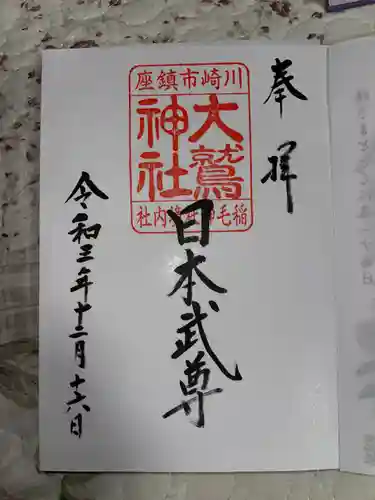 奉拝
川崎市鎮座
大鷲
神社
稲毛神社境内社
日本武尊
令和三年十二月十六日